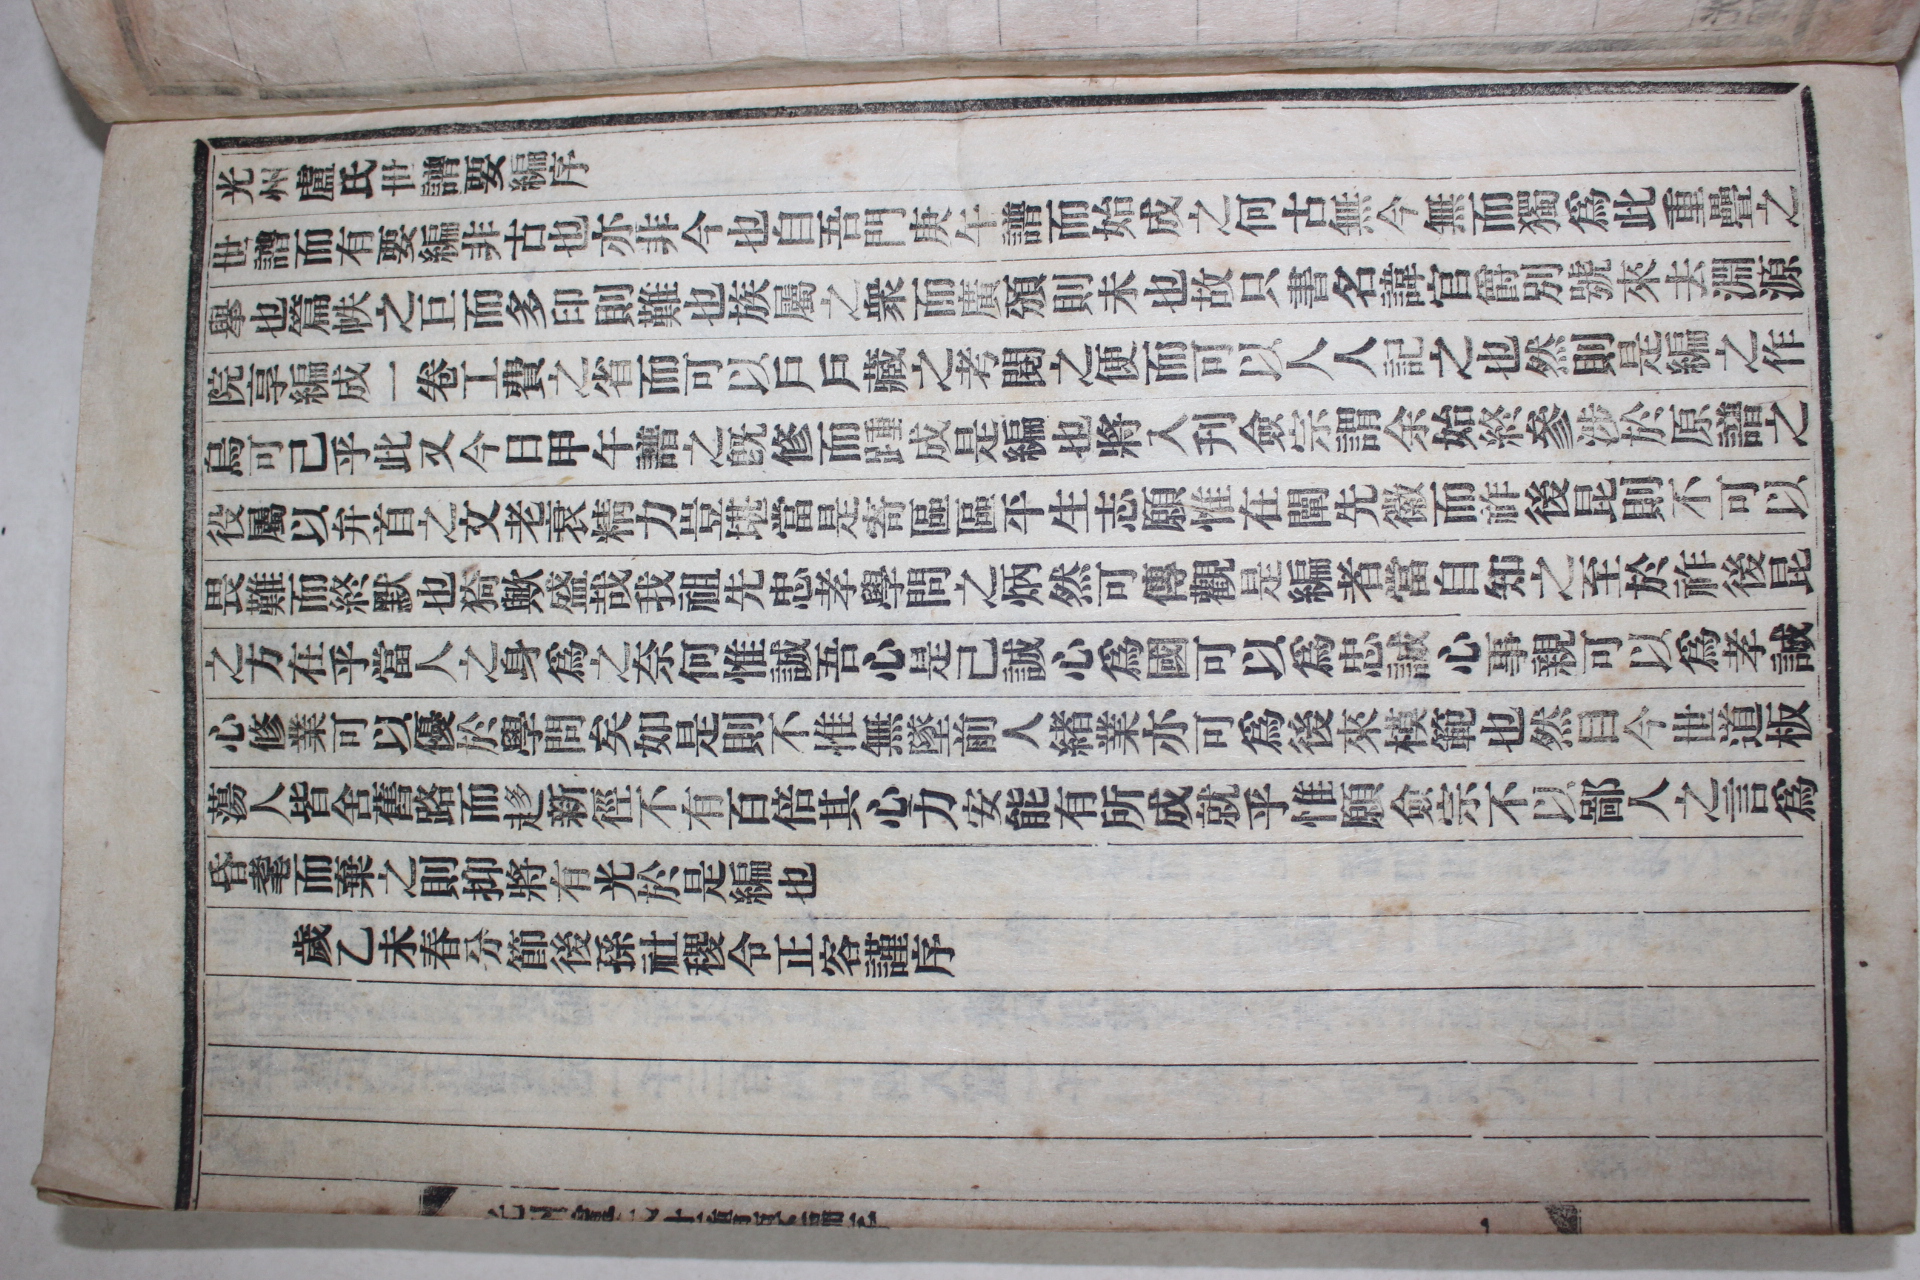 光州盧氏世譜要編序
世譜而有要編非古也亦非今也自吾門庚午譜而始成之何古無今無而獨爲此重疊之
擧也篇帙之巨而多印則難也族屬之衆而廣頒則未也故只書名諱官爵別號來去淵源
院享編成一卷工費之省而可以戶戶藏之考閱之便而可以人人記之也然則是編之作
烏可已乎此又今日甲午譜之旣修而踵成是編也將入刊僉宗謂余始終參涉於原譜之
役屬以弁首之文老衰精力豈堪當是寄區區平生志願惟在闡先徽而祚後昆則不可以
畏難而終默也猗歟盛哉我祖先忠孝學問之炳然可傳觀是編者當自知之至於祚後昆
之方在乎當人之身爲之奈何惟誠吾心是已誠心爲國可以爲忠誠心事親可以爲孝誠
心修業可以優於學問矣如是則不惟無墜前人緖業亦可爲後來模範也然目今世道板
蕩人皆舍舊路而趍新徑不有百倍其心力安能有所成就乎惟願僉宗不以鄙人之言爲
昏耄而棄之則抑將有光於是編也
歲乙未春分節後孫社稷令正容謹序